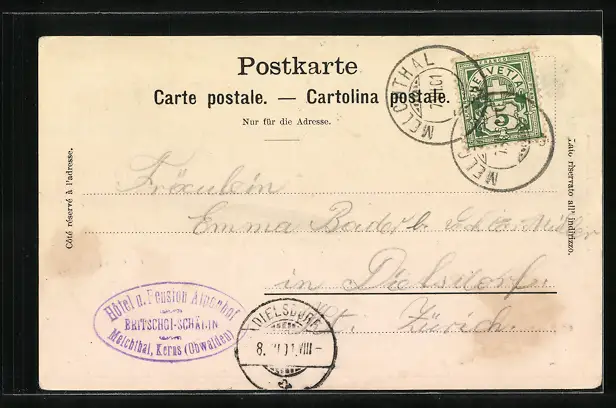 Postkarte
Carte postale. — Cartolina postale.
Nur für die Adresse.
Côté réservé à l'adresse.
Lato riservato all' indirizzo.
MELCHTHAL
FRANCO
HELVETIA
5
MELCHTHAL
Fräulein
Emma Bader b.
in Dielsdorf.
Kt. Zürich.
Hôtel u. Pension Alpenhof
BRITSCHGI-SCHÄLIN
Melchthal, Kerns (Obwalden)
DIELSDORF
8. VII 01. VIII –